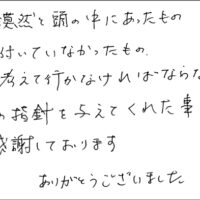 漠然と頭の中にあったもの
付いていなかったもの.
考えて行かなければならな
の指針を与えてくれた事
感謝しております
ありがとうございました